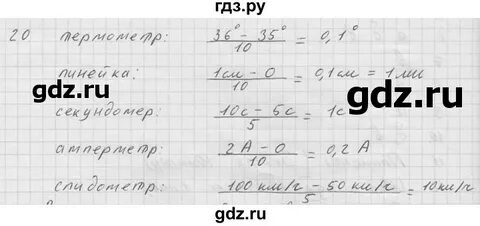 гдз.ру
20 термометр: 36° - 35° / 10 = 0,1°
линейка: 1см - 0 / 10 = 0,1см = 1мм
gdz.ru
gdz.ru
секундомер: 10с - 5с / 5 = 1с
амперметр: 2А - 0 / 10 = 0,2 А
gdz.ru
gdz.ru
спидометр: 100 км/ч - 50 км/ч / 5 = 10км/ч
gdz.ru